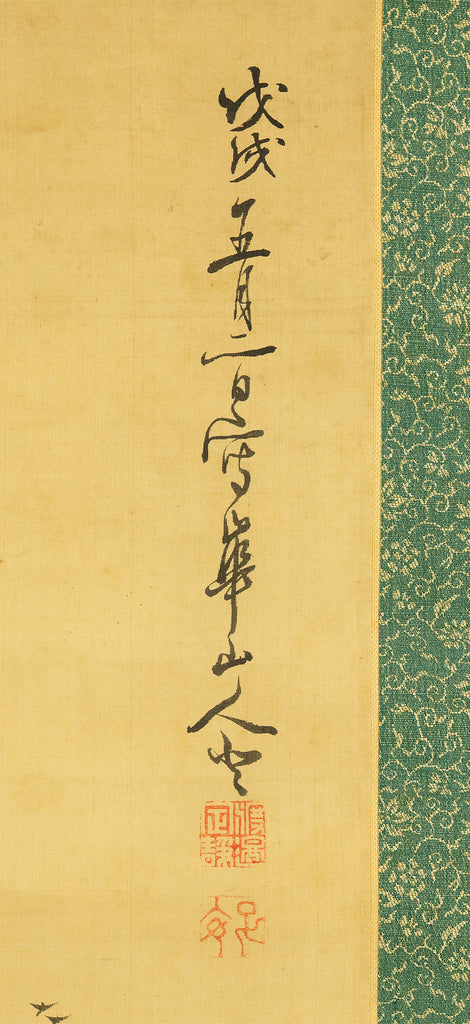 戊戌五月二日寫崋山人登